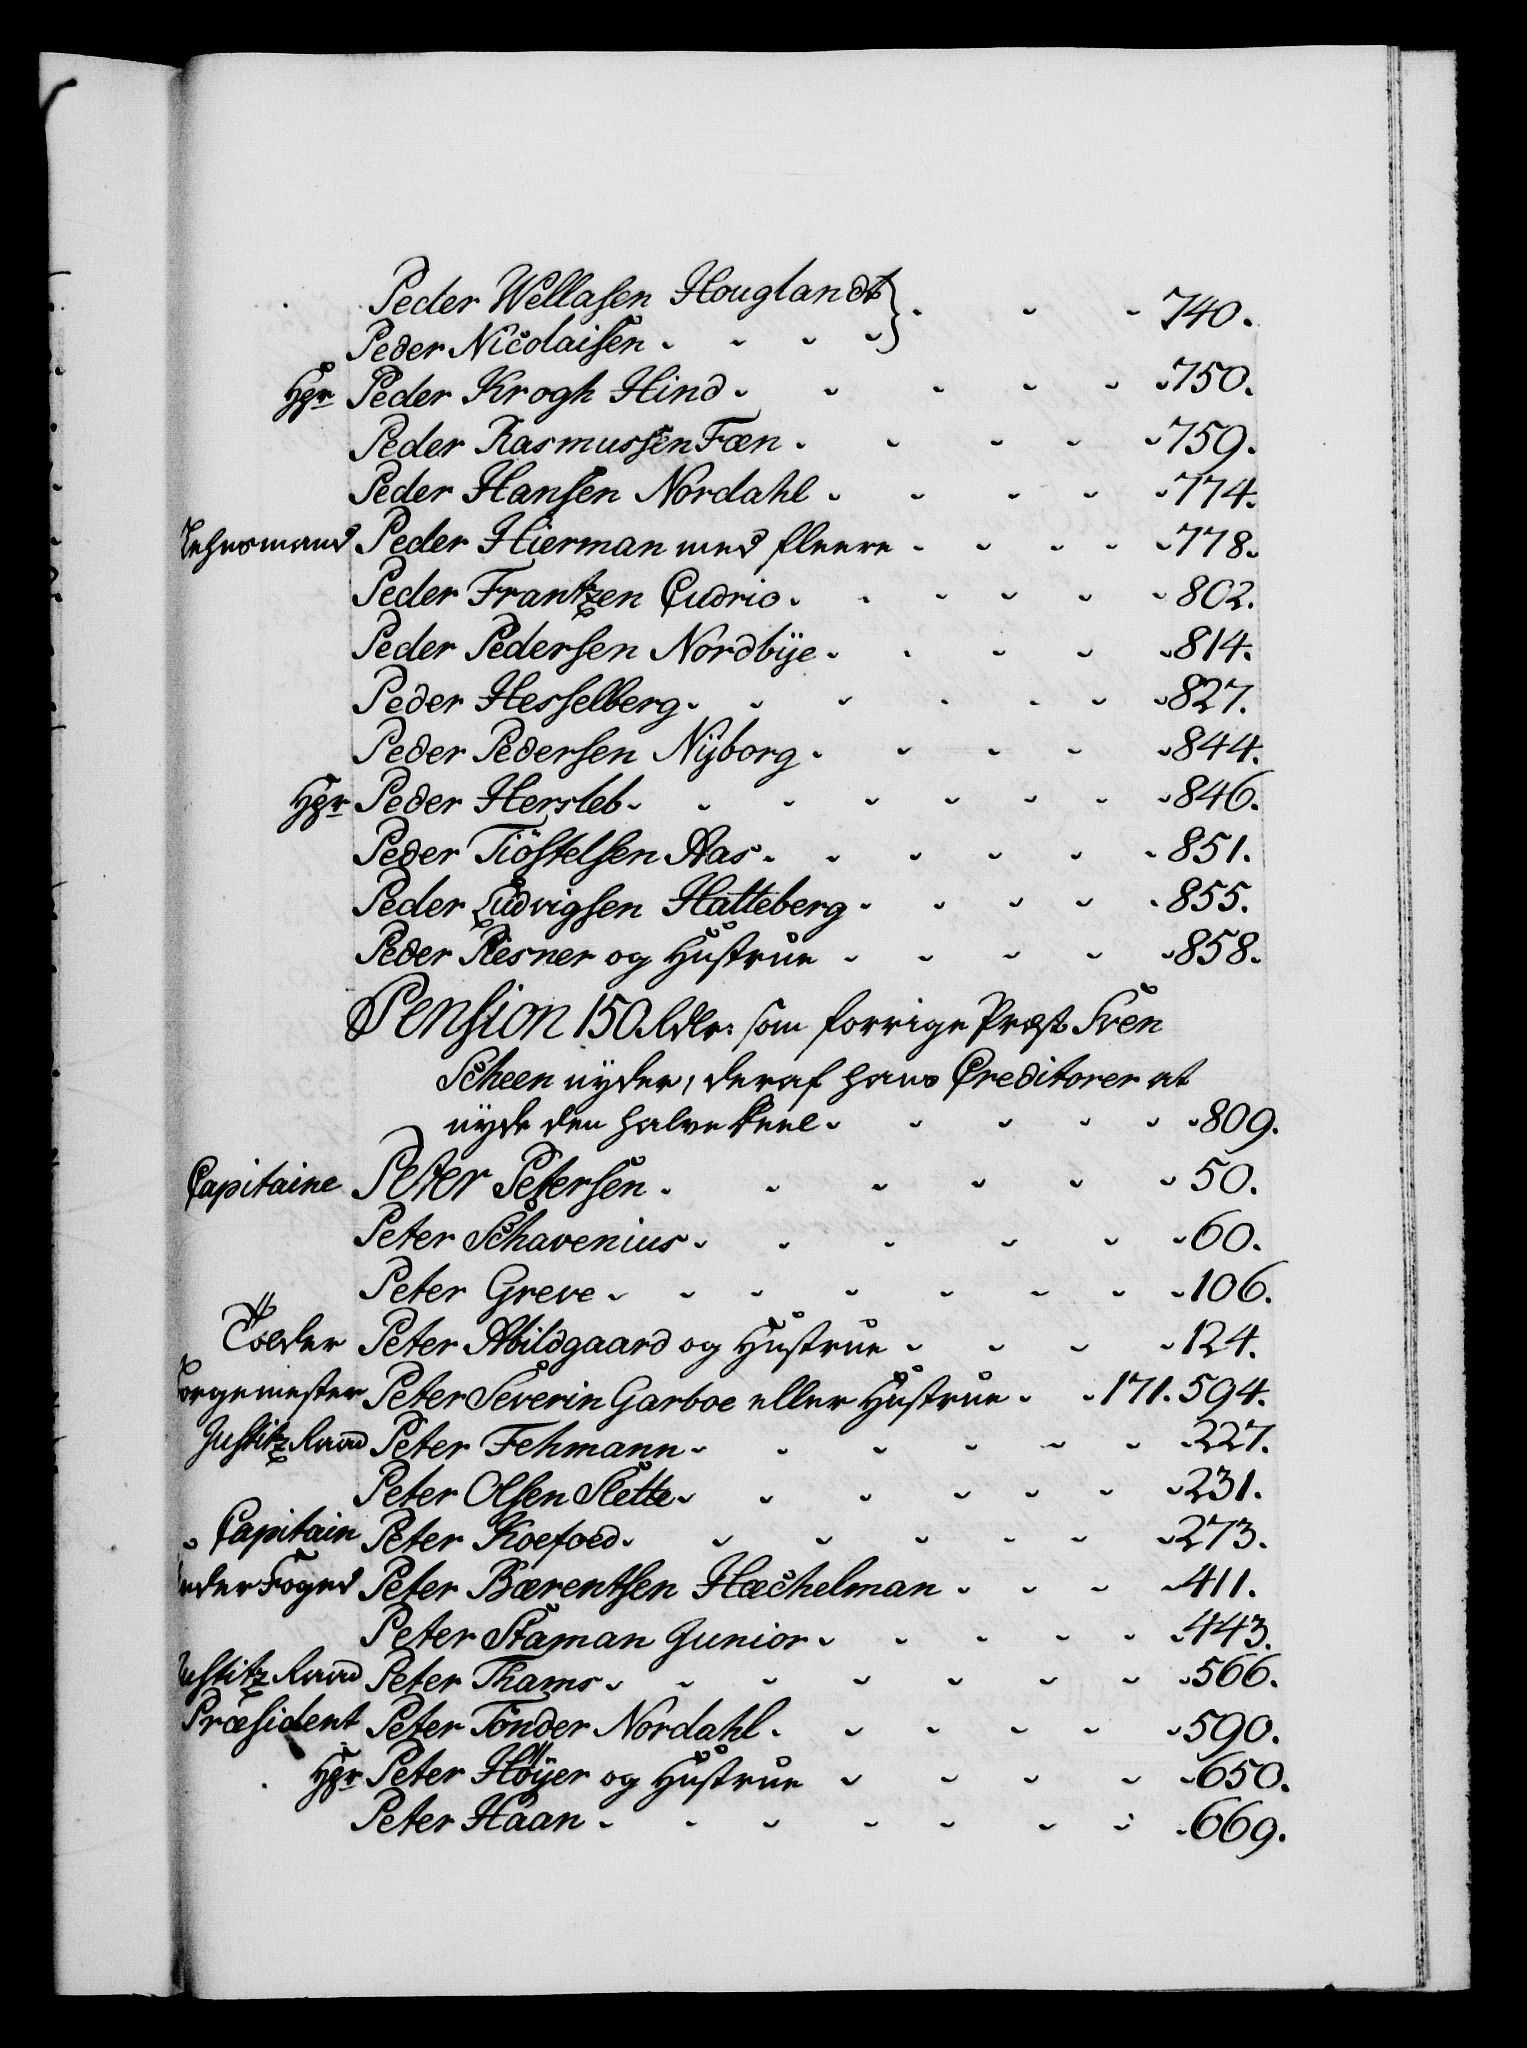 Peder Wellasen Houglandt } - - - 740.
Peder Nicolaisen - - - -
Hgr Peder Krogh Hind - - - - - 750.
Peder Rasmussen Fæn - - - - - 759.
Peder Hansen Nordahl - - - - - 774.
Lehnsmand Peder Hierman med fleere - - - - - 778.
Peder Frantzen Cudrio - - - - - - 802.
Peder Pedersen Nordbÿe - - - - - 814.
Peder Hesselberg - - - - - - - 827.
Peder Pedersen Nÿborg - - - - - 844.
Hgr Peder Hersleb - - - - - - - - 846.
Peder Tiöstelsen Aas - - - - - - 851.
Peder Ludvigsen Hatteberg - - - - - 855.
Peder Resner og Hustrue - - - - - 858.
Pension 150 Rdlr: som forrige Præst Sven
Scheen nyder, deraf hans Creditorer at
nyde den halve Deel - - - - - - 809.
Capitaine Peter Petersen - - - - - - 50.
Peter Schavenius - - - - - - 60.
Peter Greve - - - - - - - - 106.
Tolder Peter Abildgaard og Hustrue - - - - 124.
Peter Severin Garboe eller Hustrue - - 171. 594.
Justitz Raad Peter Fehmann - - - - - - - 227.
Peter Olsen Slette - - - - - - - 231.
Capitain Peter Koefoed - - - - - - - 273.
Peter Bærentsen Hachelman - - - - 411.
Peter Staman Junior - - - - - - 443.
Justitz Raad Peter Thams - - - - - - - - 566.
Præsident Peter Tönder Nordahl - - - - - - 590.
Hgr Peter Höÿer og Hustrue - - - - - 650.
Peter Haan - - - - - - - - 669.